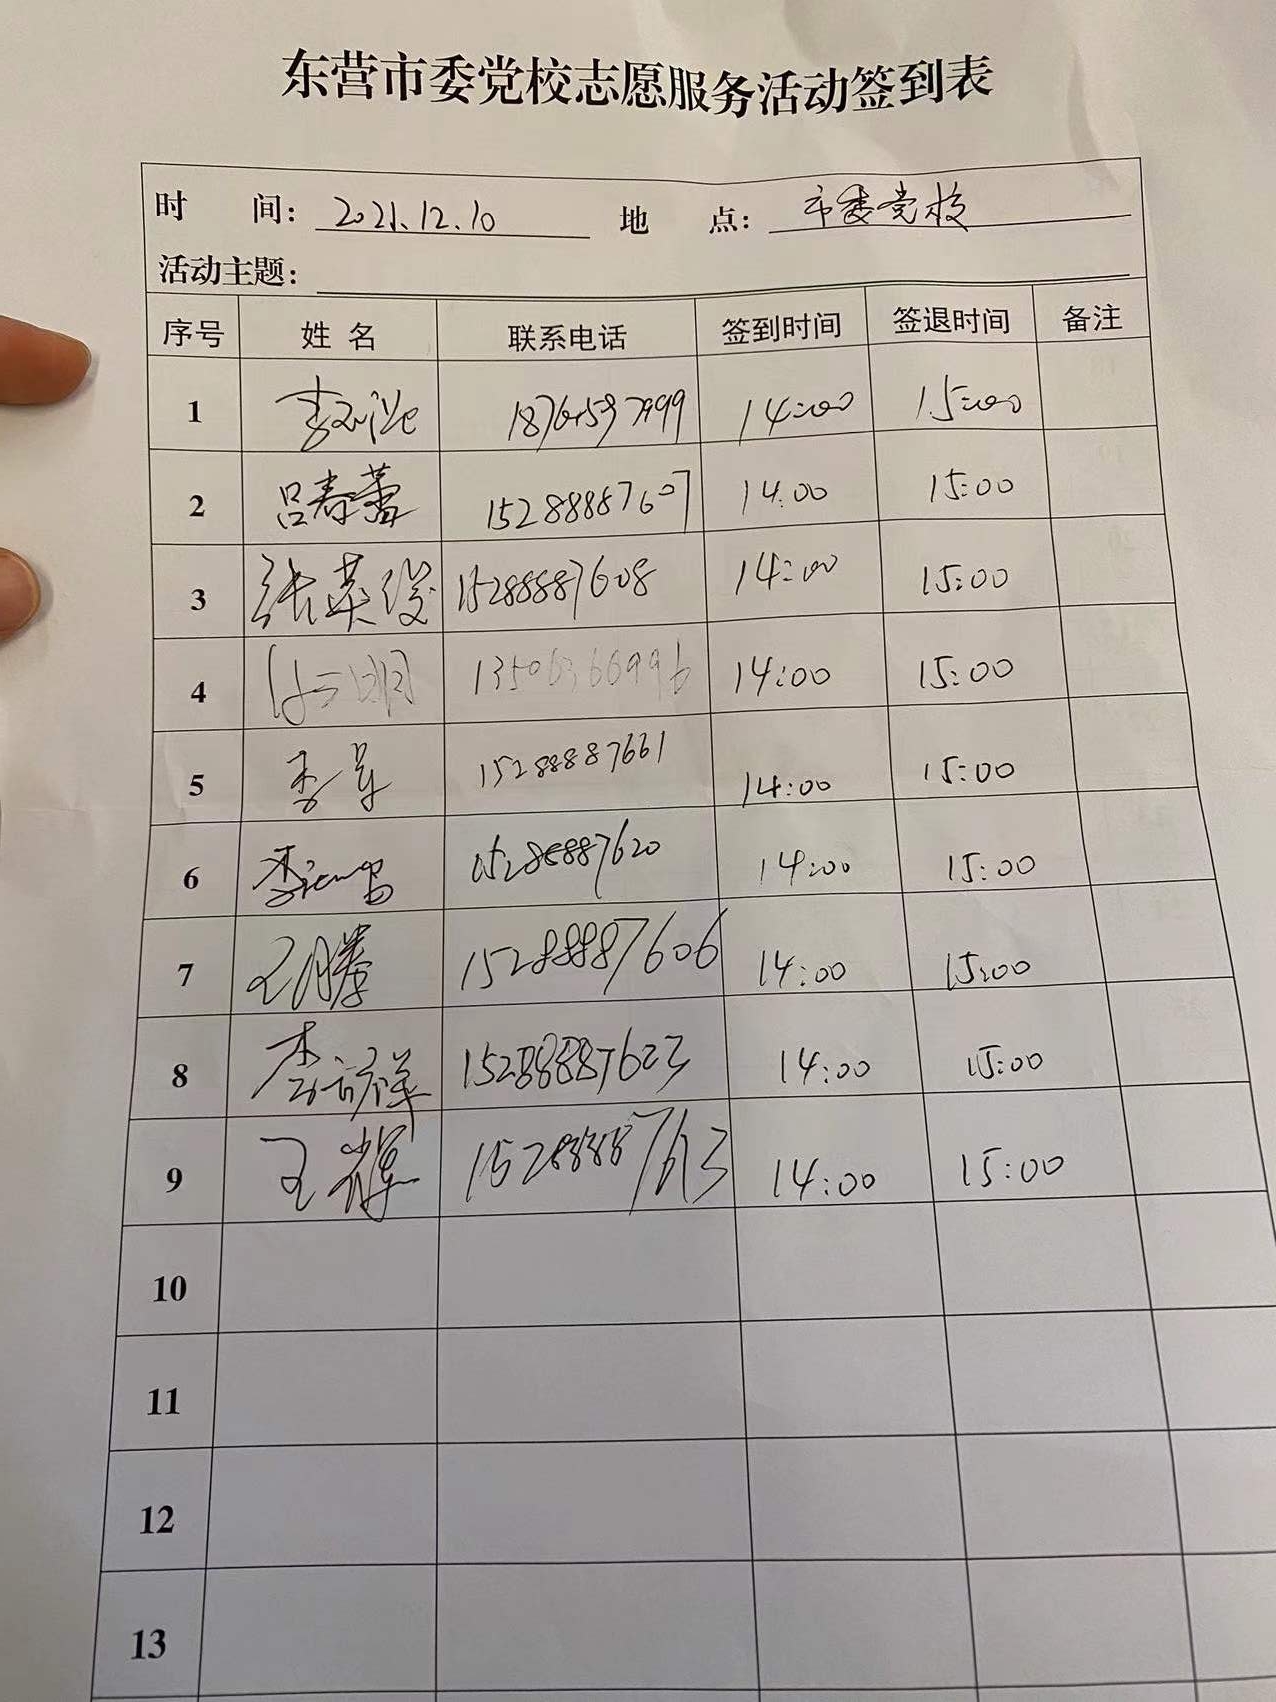 东营市委党校志愿服务活动签到表
时 间: 2021.12.10 地 点: 市委党校
活动主题:
序号 姓 名 联系电话 签到时间 签退时间 备注
1 14:00 15:00
2 吕春蕾 15288887607 14:00 15:00
3 张英俊 15288887608 14:00 15:00
4 13506366996 14:00 15:00
5 15288887661 14:00 15:00
6 15288887620 14:00 15:00
7 王腾 15288887606 14:00 15:00
8 15288887623 14:00 15:00
9 王辉 15288887613 14:00 15:00
10
11
12
13